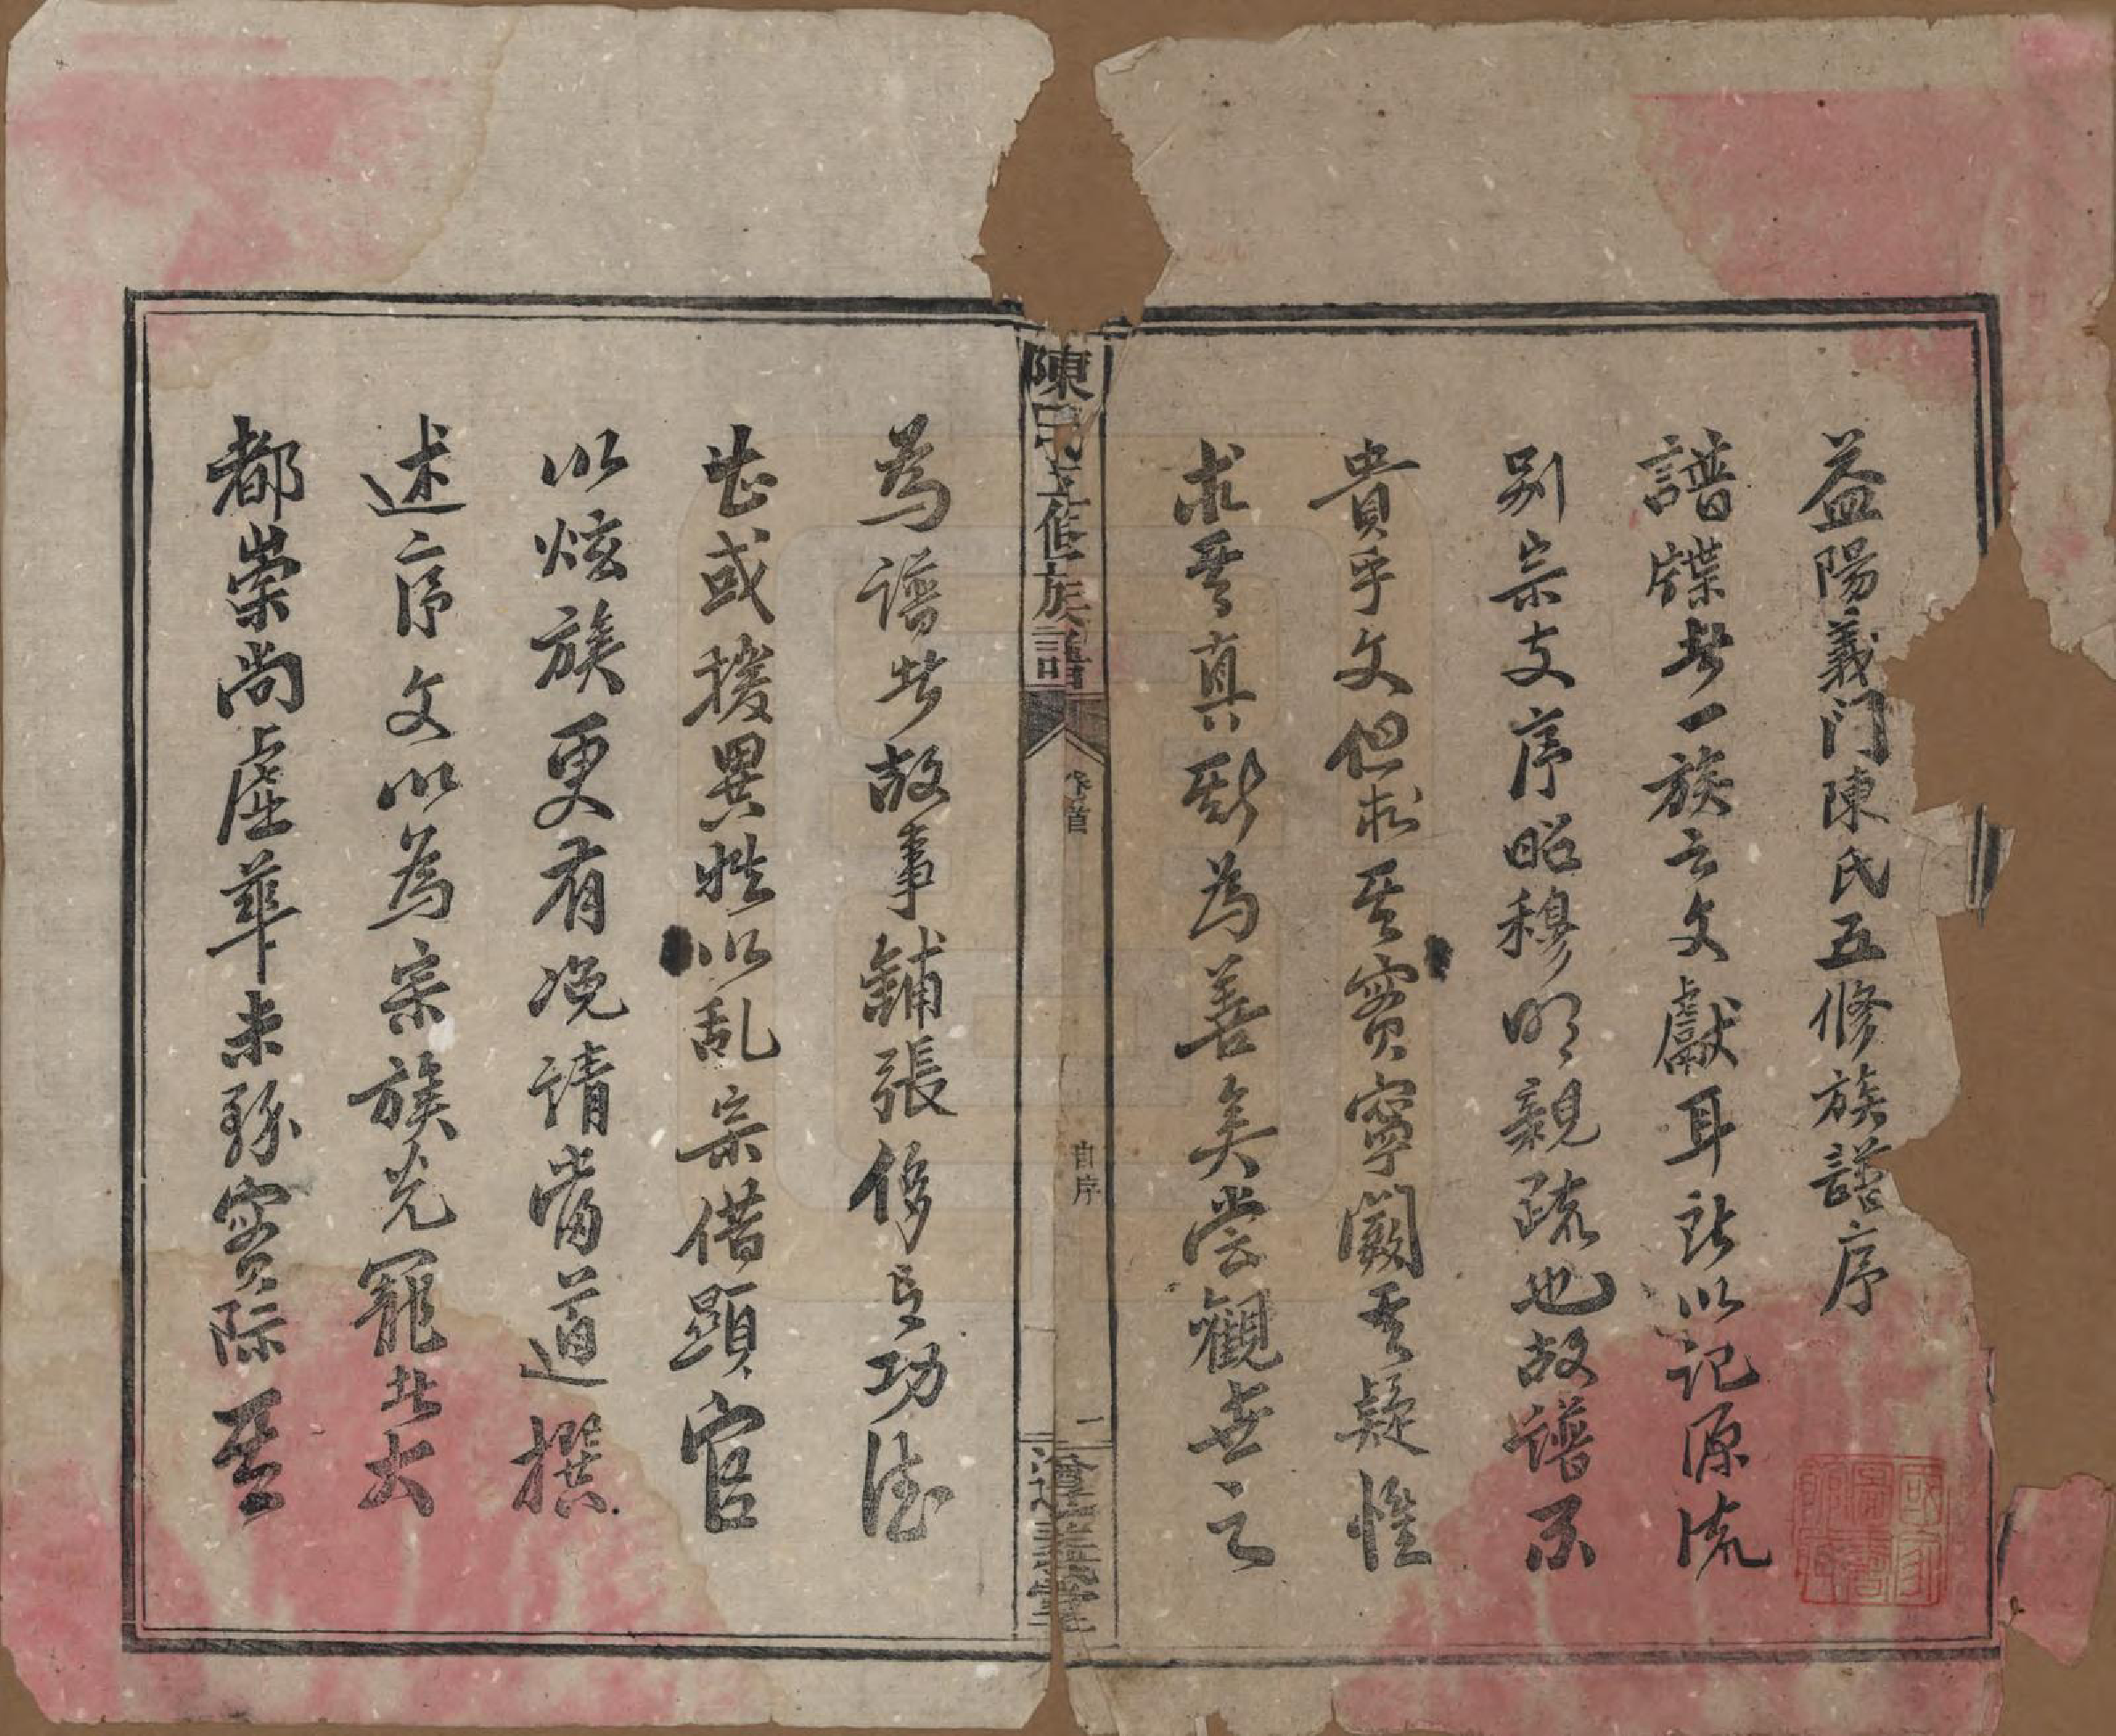 益陽義门陳氏五修族譜序
譜牒者一族之文獻耳所以记源流
别宗支序昭穆明親疏也故譜不
貴乎文但求其實寧闕其疑惟
求其真斯為善矣嘗觀世之
陳氏五修族譜
卷首
自序
一
義堂
為譜者故事鋪張侈言功德
甚或援異姓以乱宗借顕官
以炫族更有浼請當道撰
述序文以為宗族光寵此大
都崇尚虛華未務實际甚